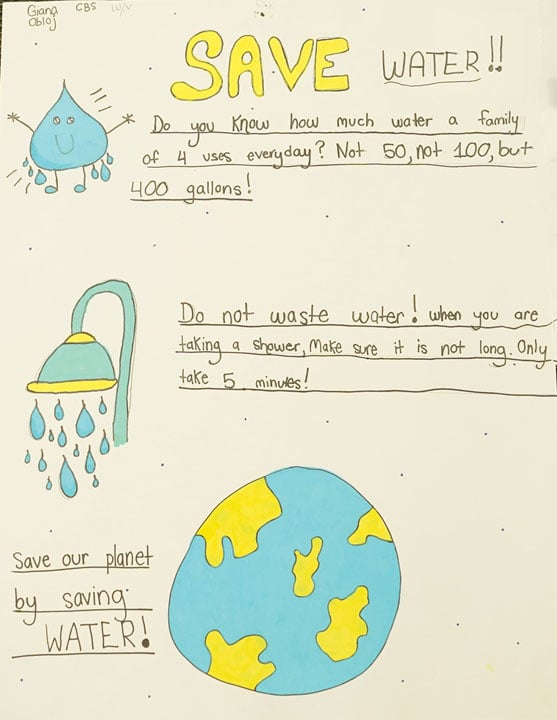 Giana CBS W/V
Obloj
SAVE WATER!!
Do you know how much water a family
of 4 uses everyday? Not 50, not 100, but
400 gallons!
Do not waste water! when you are
taking a shower, Make sure it is not long. Only
take 5 minutes!
Save our planet
by saving
WATER!